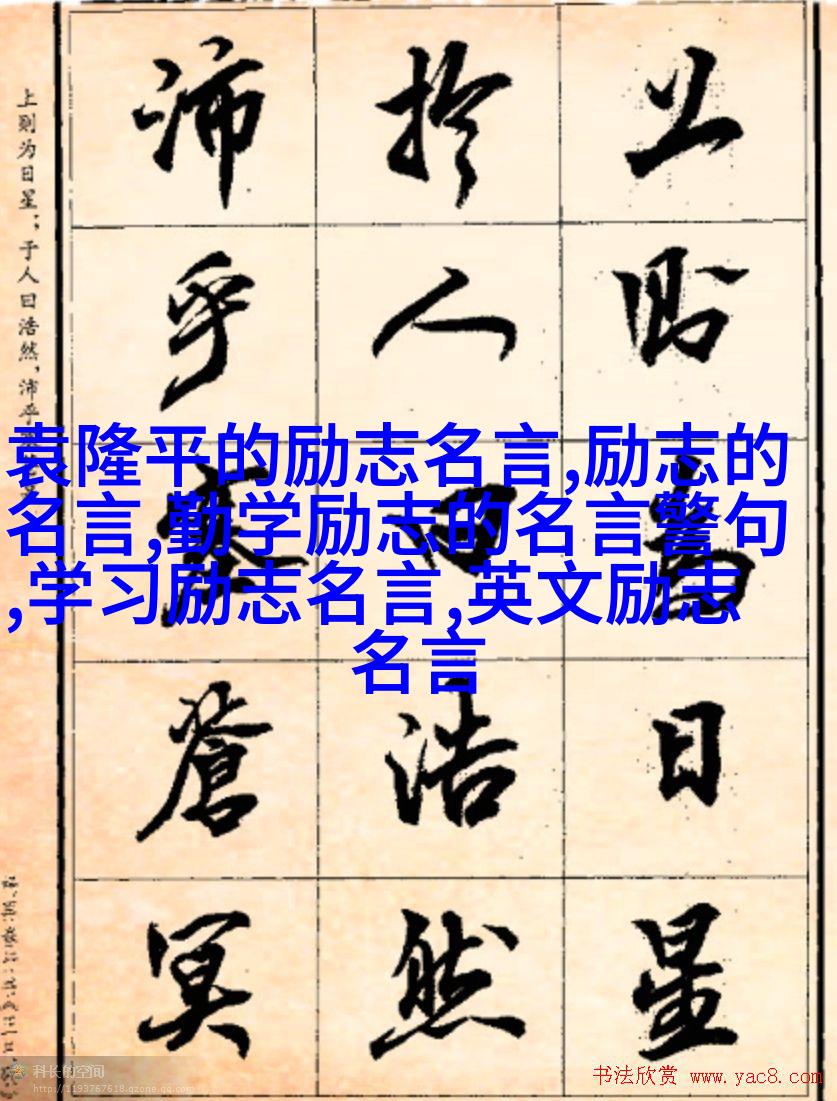 袁隆平的励志名言,励志的
名言,勤学励志的名言警句
,学习励志名言,英文励志
名言
上則為日星
扵人曰浩然
沛乎塞蒼冥
上则为日星；于人曰浩然，沛乎
科长的空间
http://1193767618.qzone.qq.com
书法欣赏 www.yac8.com